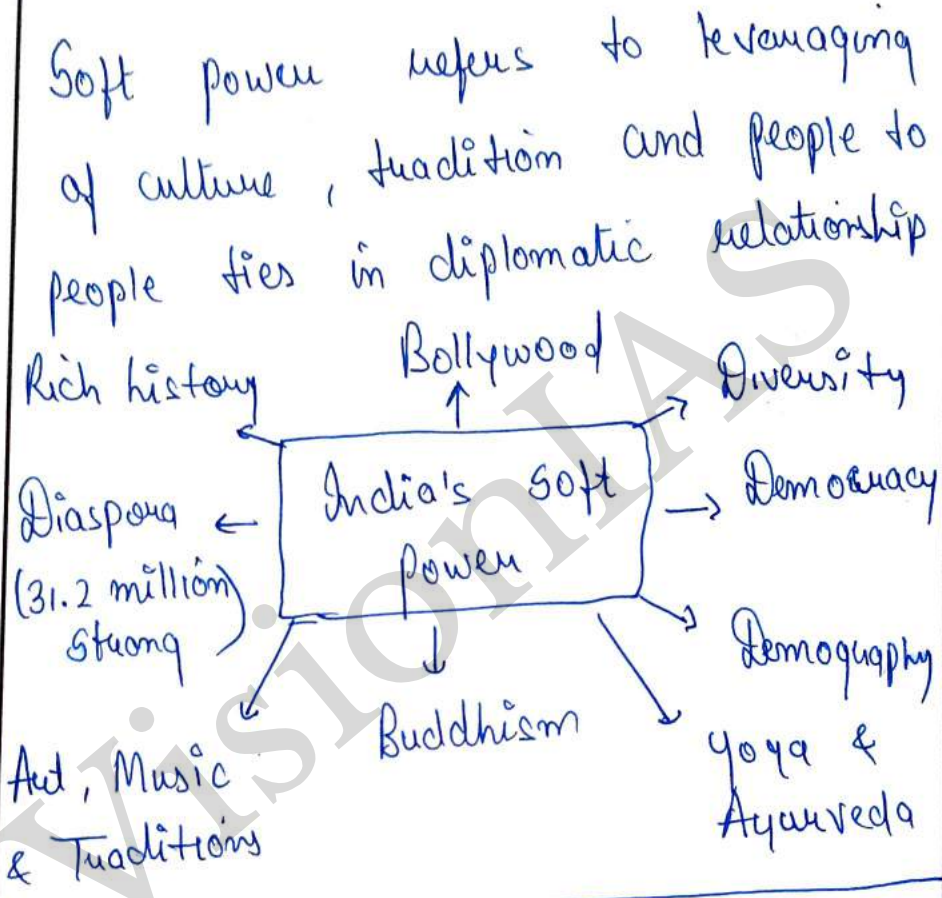 Soft power refers to leveraging
of culture, tradition and people to
people ties in diplomatic relationship
Rich history
Bollywood
Diversity
Diaspora
(31.2 million)
strong
India's soft
power
Democracy
Demography
Art, Music
& Traditions
Buddhism
Yoga &
Ayurveda
VisionIAS